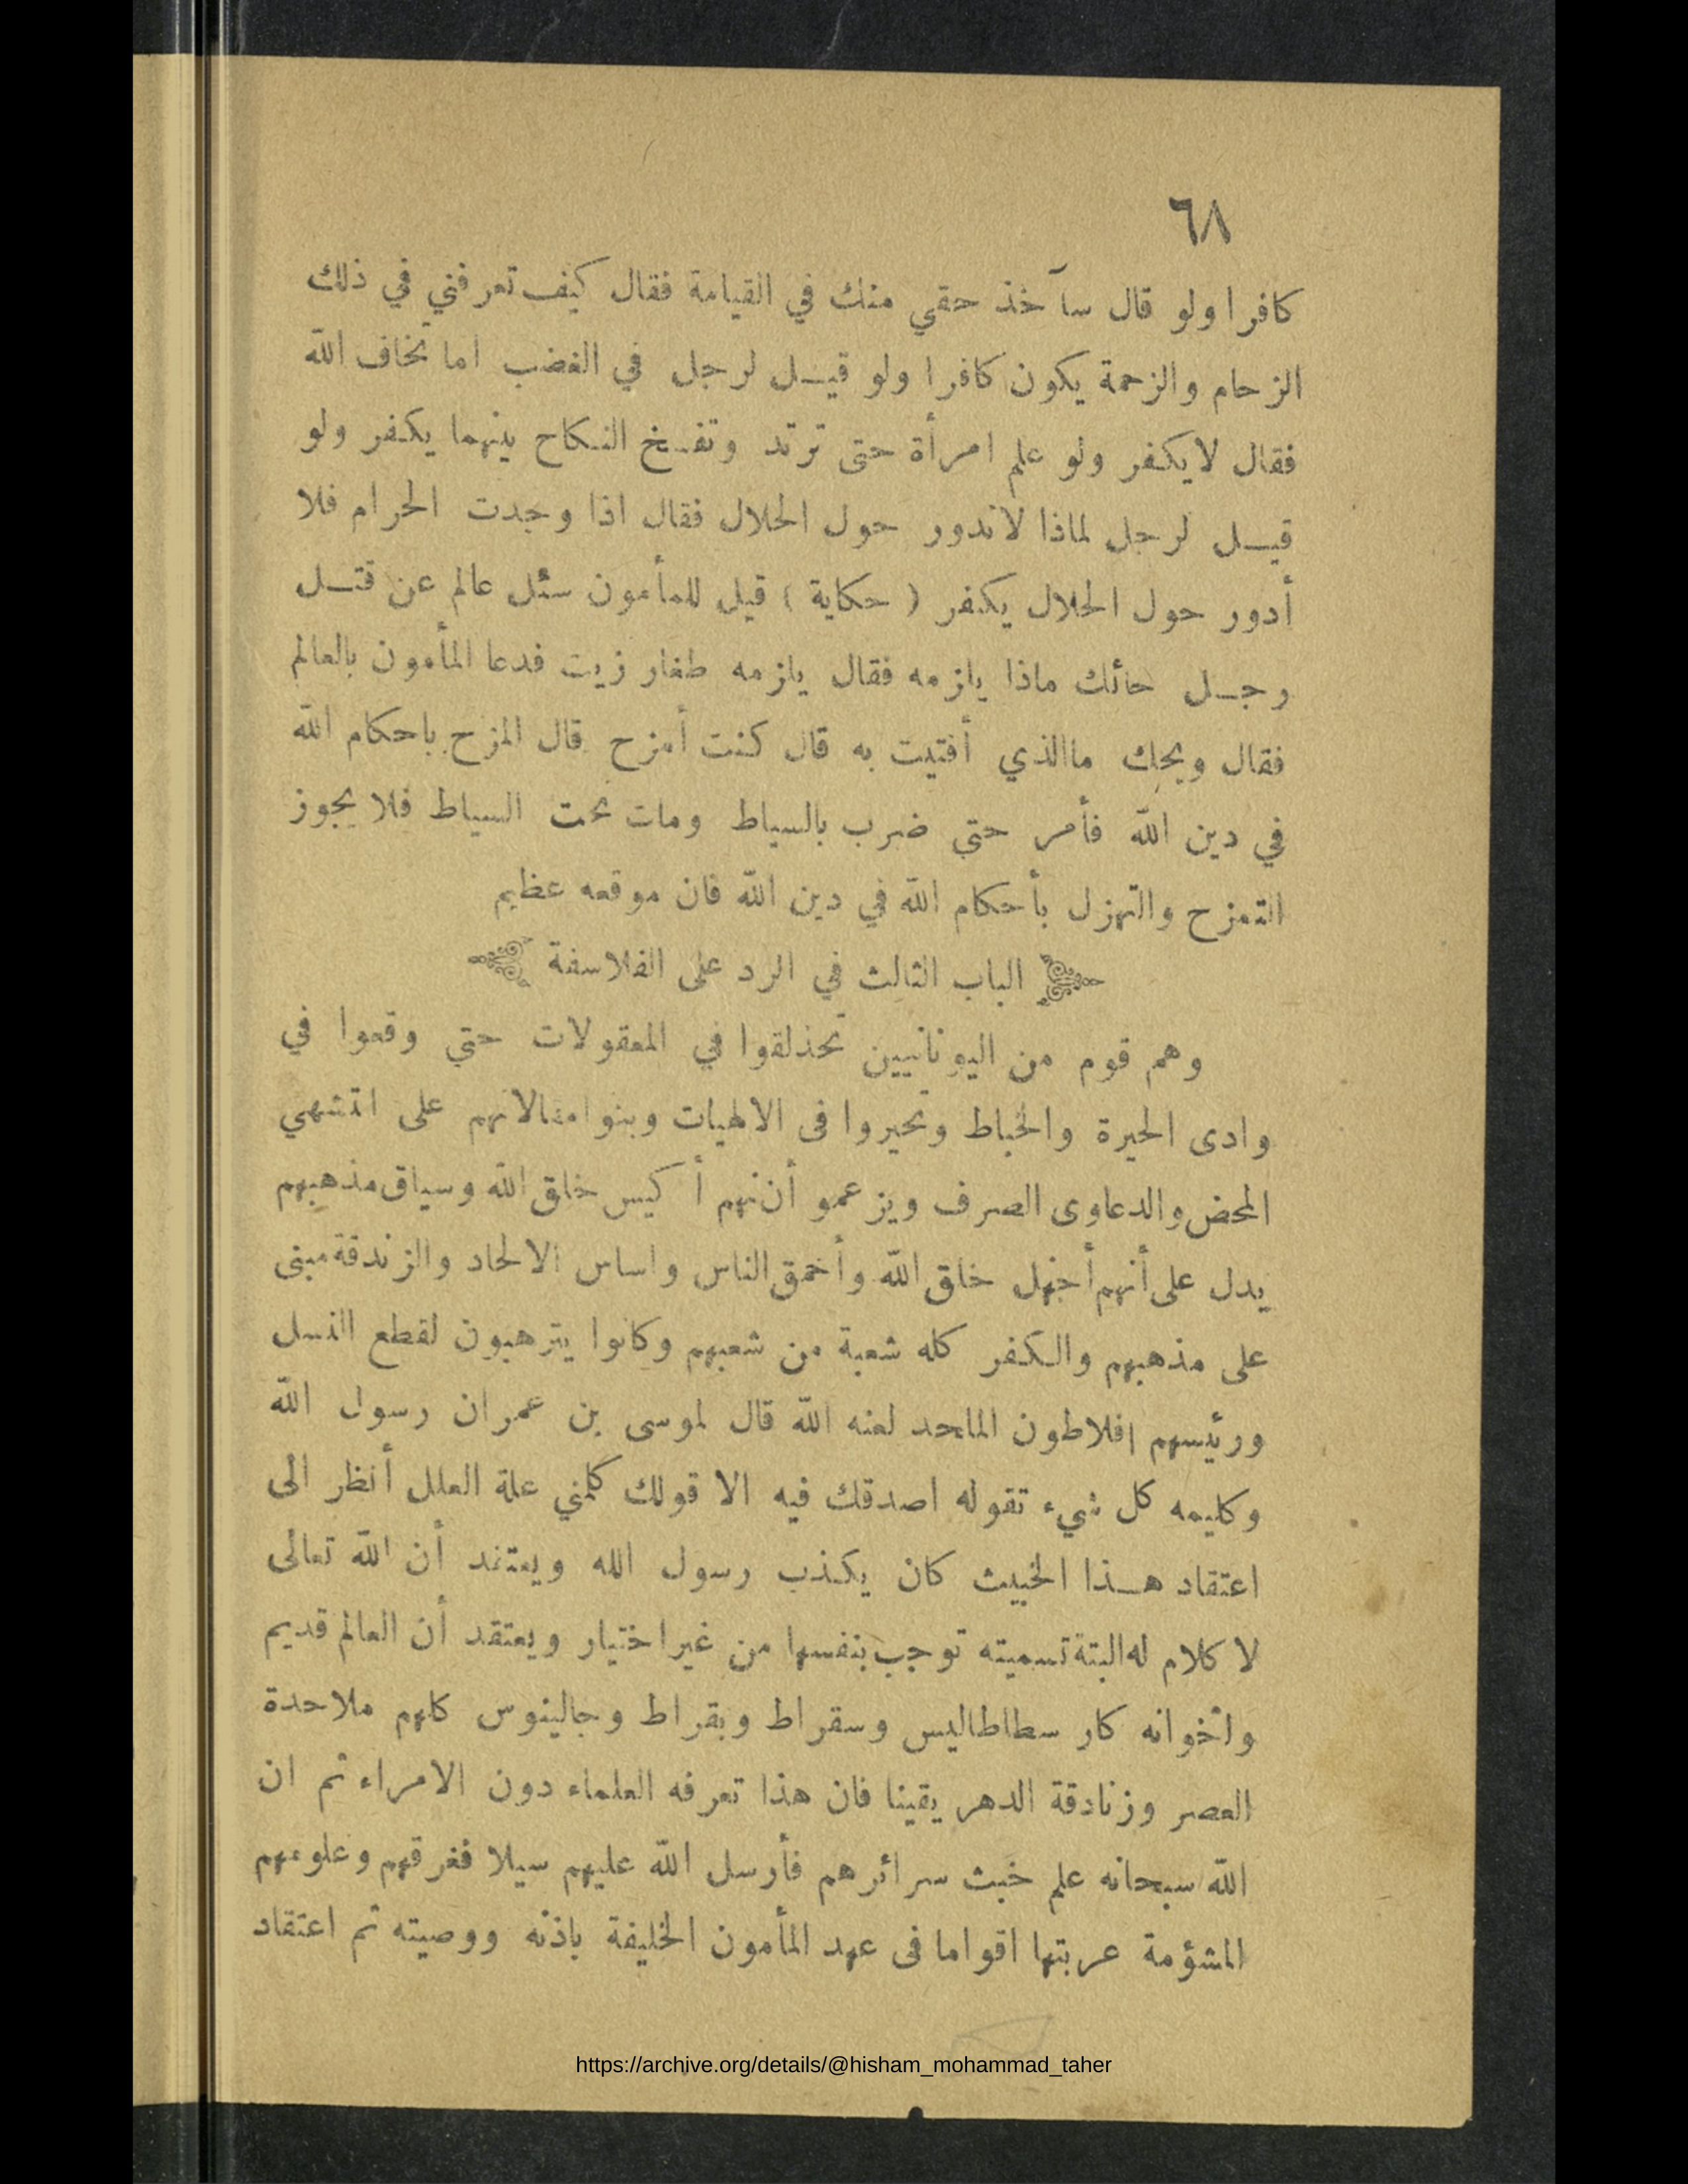 ٦٨
كافرا ولو قال سآخذ حقي منك في القيامة فقال كيف تعرفني في ذلك
الزحام والزحمة يكون كافرا ولو قيـل لرجل في الغضب اما تخاف الله
فقال لايكفر ولو علم امرأة حتى ترتد وتفسخ النكاح بينهما يكفر ولو
قيـل لرجل لماذا لاتدور حول الحلال فقال اذا وجدت الحرام فلا
أدور حول الحلال يكفر ( حكاية ) قيل للمأمون سئل عالم عن قتـل
رجـل حائك ماذا يلزمه فقال يلزمه طغار زيت فدعا المأمون بالعالم
فقال ويحك ماالذي أفتيت به قال كنت أمزح قال المزح باحكام الله
في دين الله فأمر حتى ضرب بالسياط ومات تحت السياط فلا يجوز
التمزح والتهزل بأحكام الله في دين الله فان موقعه عظيم
الباب الثالث في الرد على الفلاسفة
وهم قوم من اليونانيين تحذلقوا في المعقولات حتي وقعوا في
وادى الحيرة والخباط وتحيروا فى الالهيات وبنوا مقالاتهم على التشهي
المحض والدعاوى الصرف ويزعمو أن نهم أ كيس خلق الله وسياق مذهبهم
يدل على أنهم أجهل خلق الله وأحمق الناس واساس الالحاد والزندقة مبنى
على مذهبهم والكفر كله شعبة من شعبهم وكانوا يترهبون لقطع النسل
ورئيسهم افلاطون الملحد لعنه الله قال لموسى بن عمران رسول الله
وكليمه كل شيء تقوله اصدقك فيه الا قولك كلمني علة العلل أنظر الى
اعتقاد هـذا الخبيث كان يكذب رسول الله ويعتقد أن الله تعالى
لا كلام له البتة تسميته توجب بنفسها من غير اختيار ويعتقد أن العالم قديم
وأخوانه كار سطاطاليس وسقراط وبقراط وجالينوس كلهم ملاحدة
العصر وزنادقة الدهر يقينا فان هذا تعرفه العلماء دون الامراء ثم ان
الله سبحانه علم خبث سرائرهم فأرسل الله عليهم سيلا فغرقهم وعلومهم
المشؤمة عربتها اقواما فى عهد المأمون الخليفة باذنه ووصيته ثم اعتقاد
https://archive.org/details/@hisham_mohammad_taher